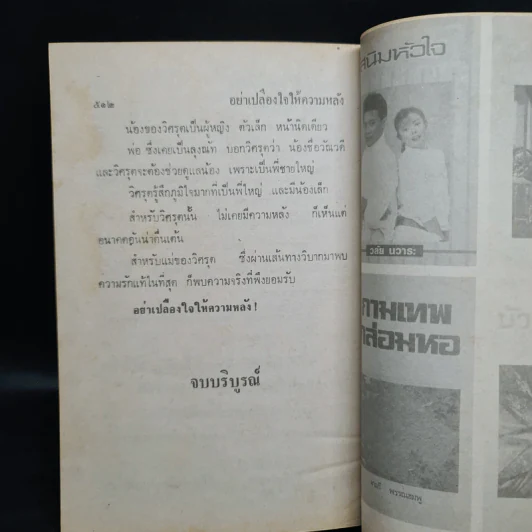 ๕๑๒ อย่าเปลืองใจให้ความหลัง
น้องของวิศรุตเป็นผู้หญิง ตัวเล็ก หน้านิดเดียว
พ่อ ซึ่งเคยเป็นลุงณัท บอกวิศรุตว่า น้องชื่อวัณวดี
และวิศรุตจะต้องช่วยดูแลน้อง เพราะเป็นพี่ชายใหญ่
วิศรุตรู้สึกภูมิใจมากที่เป็นพี่ใหญ่ และมีน้องเล็ก
สำหรับวิศรุตนั้น ไม่เคยมีความหลัง ก็เห็นแต่
อนาคตอันน่าตื่นเต้น
สำหรับแม่ของวิศรุต ซึ่งผ่านเส้นทางวิบากมาพบ
ความรักแท้ในที่สุด ก็พบความจริงที่พึงยอมรับ
อย่าเปลืองใจให้ความหลัง!
จบบริบูรณ์
สนิมหัวใจ
วลัย นวาระ
กามเทพ
หอ